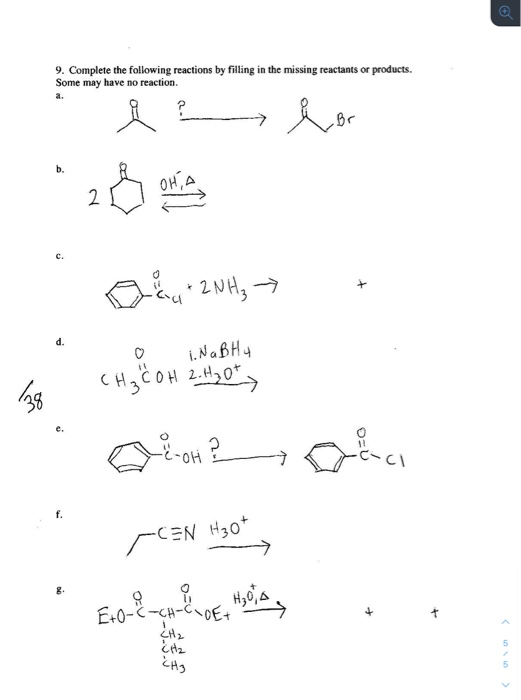 9. Complete the following reactions by filling in the missing reactants or products.
Some may have no reaction.
a.
O ? O Br
b.
2 O OH⁻, Δ
c.
O C Cl + 2NH₃ → +
d.
O
CH₃COH
1. NaBH₄
2. H₃O⁺
/38
e.
O C-OH ? O C-Cl
f.
C≡N H₃O⁺
g.
EtO-C-CH-C OEt H₃O⁺, Δ + +
O O
CH₂
CH₂
CH₃
5
/
5